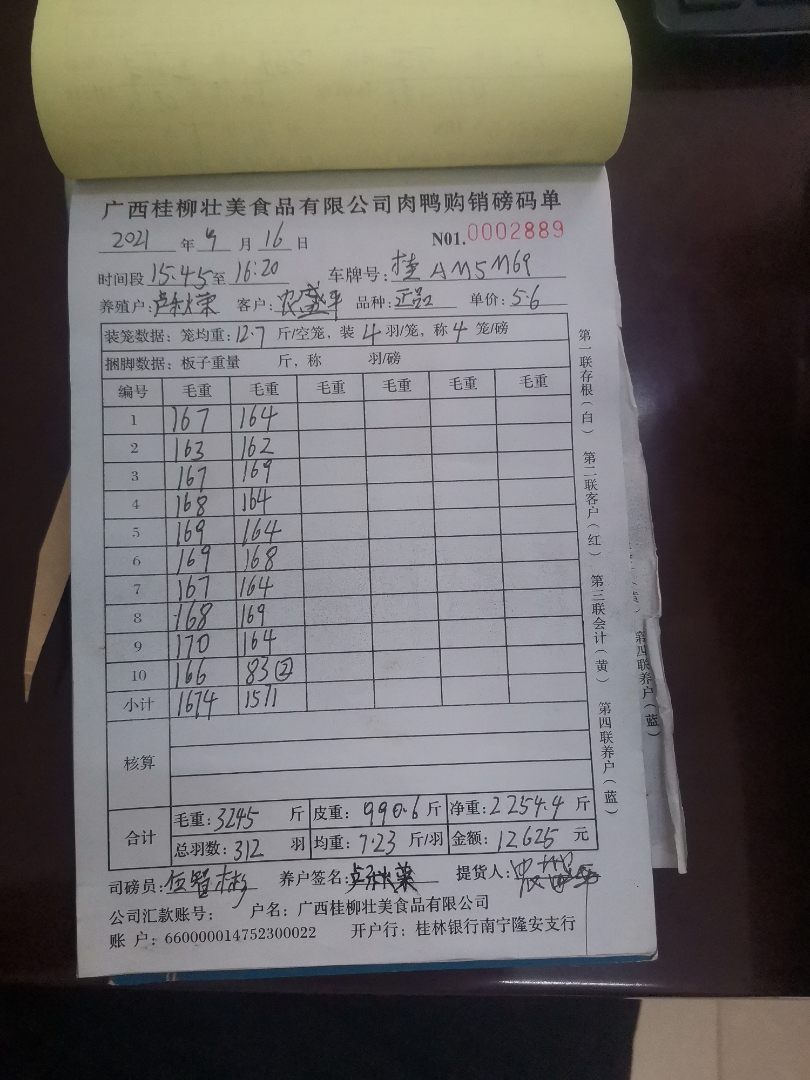 广西桂柳壮美食品有限公司肉鸭购销磅码单
2021 年 9 月 16 日 N01.0002889
时间段 15:45 至 16:20 车牌号: 桂AM5M69
养殖户: 卢秋荣 客户: 农盛平 品种: 正品 单价: 5.6
装笼数据: 笼均重: 12.7 斤/空笼, 装 4 羽/笼, 称 4 笼/磅
捆脚数据: 板子重量 斤, 称 羽/磅
编号 毛重 毛重 毛重 毛重 毛重 毛重
1 167 164
2 163 162
3 167 169
4 168 164
5 169 164
6 169 168
7 167 164
8 168 169
9 170 164
10 166 83②
小计 1674 1571
核算
合计
毛重: 3245 斤 皮重: 990.6 斤 净重: 2254.4 斤
总羽数: 312 羽 均重: 7.23 斤/羽 金额: 12625 元
司磅员: 养户签名: 提货人:
公司汇款账号: 户名: 广西桂柳壮美食品有限公司
账 户: 660000014752300022 开户行: 桂林银行南宁隆安支行
第一联存根(白) 第二联客户(红) 第三联会计(黄) 第四联养户(蓝)
第四联养户(蓝)